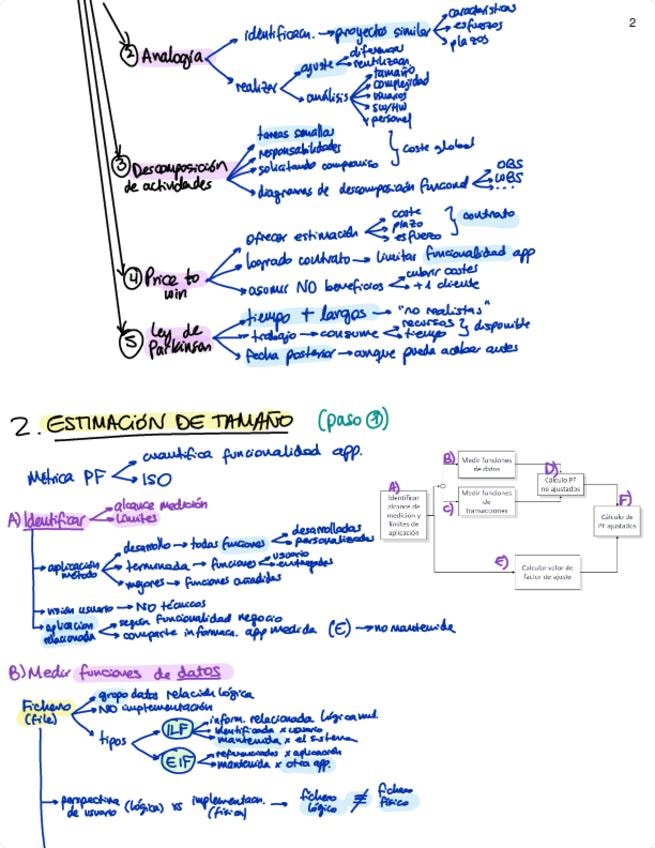 2
② Analogía
identificacn. → proyectos similar
características
esfuerzos
plazos
realizar
ajuste
diferencias
reutilizacn.
análisis
tamaño
complejidad
usuarios
SW/HW
personal
③ Descomposición de actividades
tareas sencillas
responsabilidades
solicitando compromiso
} coste global
diagramas de descomposición funcional
OBS
WBS
...
④ Price to win
ofrecer estimación
coste
plazo
esfuerzo
} contrato
logrado contrato → limitar funcionalidad app
asumir NO beneficios
cubrir costes
+1 cliente
⑤ Ley de Parkinson
tiempo + largos → "no realistas"
trabajo → consume
recursos
tiempo
} disponible
fecha posterior → aunque pueda acabar antes
2. ESTIMACIÓN DE TAMAÑO (paso ①)
Métrica PF
cuantifica funcionalidad app.
ISO
A) Identificar
alcance medición
límites
aplicación método
desarrollo → todas funciones
desarrolladas
personalizadas
terminada → funciones
usuario
entregadas
mejores → funciones añadidas
visión usuario → NO técnicos
aplicación relacionada
según funcionalidad negocio
comparte informacn. app medida (E) → no mantenida
A)
Identificar
alcance de
medición y
límites de
aplicación
B)
Medir funciones
de datos
C)
Medir funciones
de
transacciones
D)
Cálculo PF
no ajustados
E)
Calcular valor de
factor de ajuste
F)
Cálculo de
PF ajustados
B) Medir funciones de datos
Fichero (file)
grupo datos relación lógica
NO implementación
tipos
ILF
inform. relacionada lógicamd.
identificada x usuario
mantenida x el sistema
EIF
referenciados x aplicación
mantenida x otra app.
perspectiva de usuario (lógica) vs implementacn. (física) → fichero lógico ≠ fichero físico